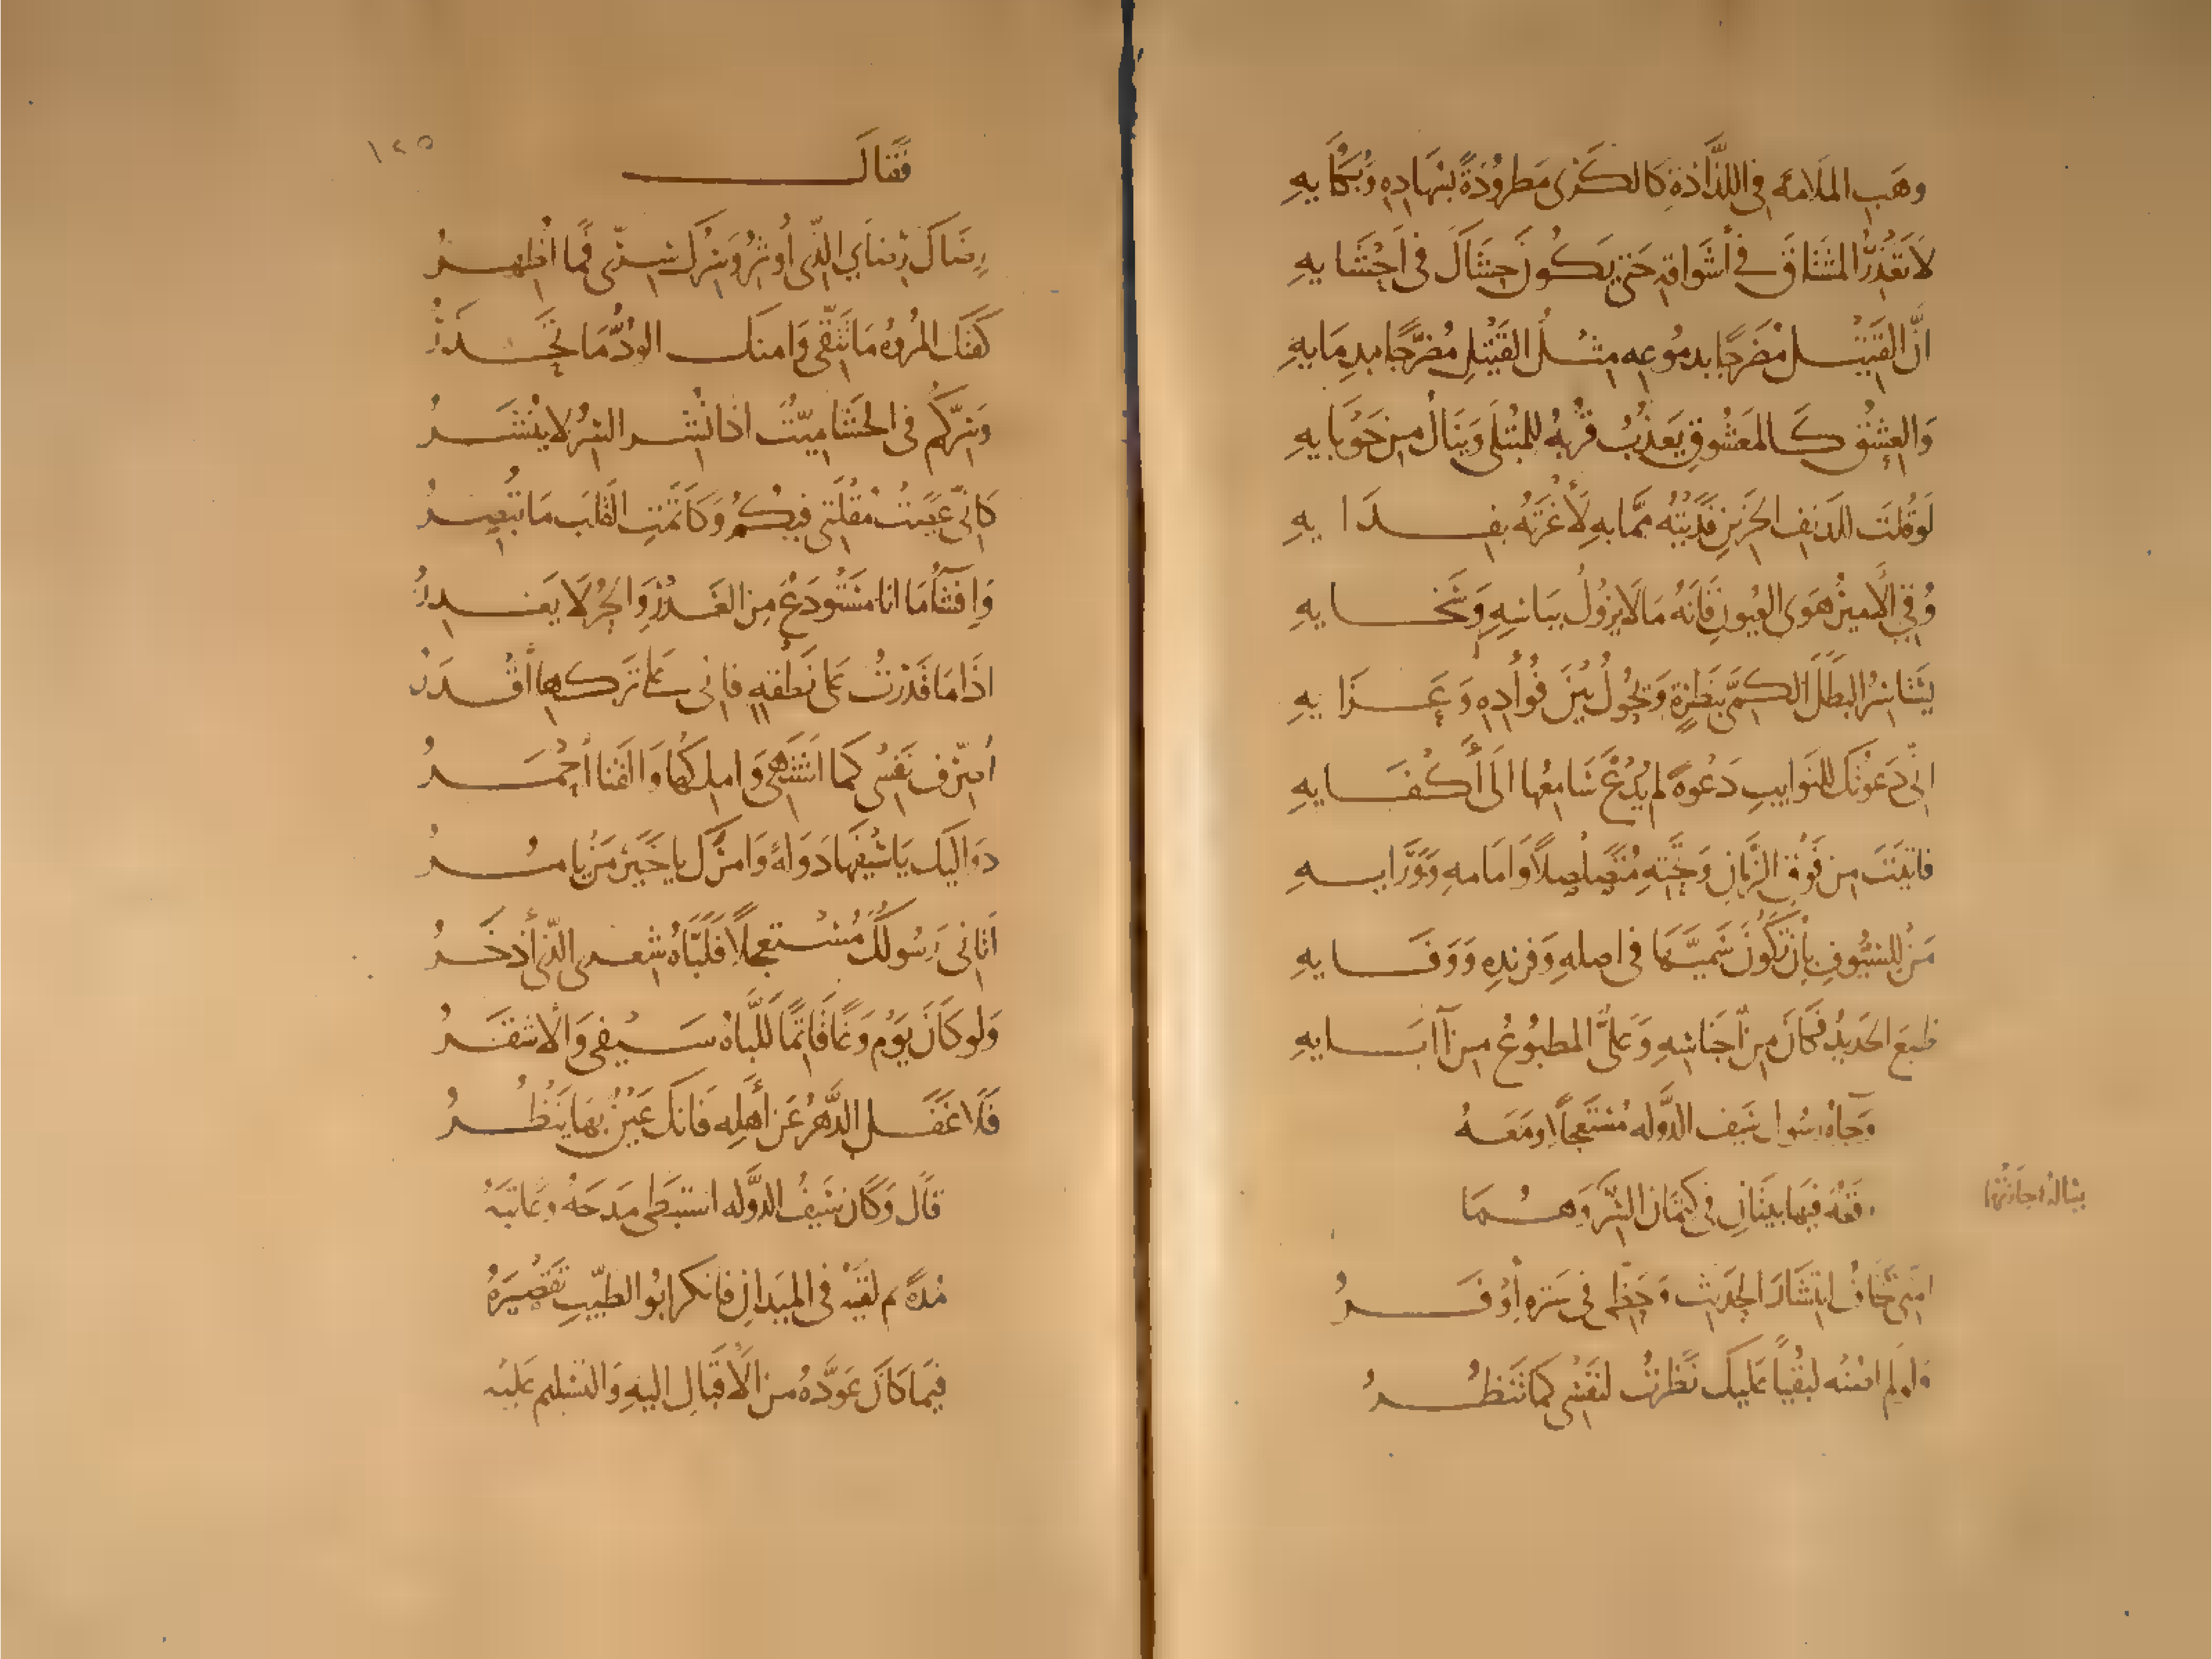 وهَبِ المَلَامَه فى اللذَّاذةِ كالكَرى مَطرُودَةً بسُهادِهِ وَبُكَايهِ
لَا تَعْذِرُ المشتَاقَ فى أشوَاقهِ حَتى يَكُونَ حَشَاكَ فى أحْشَايهِ
انَّ القَتيْل مُضرجًا بدمُوعِه مثْلُ القَتيْلِ مُضرَّجًا بدِمَايهِ
وَالعِشق كالمَعشُوقِ يَعذُبُ قُربُهُ للمُبْتلَى وَيَنَالُ مِن حَوْبايهِ
لوقُلتَ للدَنِفِ الحَزينِ فدَيتُه ممَّا بهِ لَأَغَرْتَهُ بفِدَايهِ
وُقِيَ الأميرُ هَوى العُيونِ فَإنهُ مَا لَا يزُولُ ببَاسِهِ وَسَخايهِ
يَسْتاسِرُ البطَلَ الكمىَّ بنَظرَةٍ وَيحُولُ بَيْنَ فُؤَادِهِ وَعَزَايهِ
انّى دَعَوتُكَ للنوَايبِ دَعْوةً لم يُدْعَ سَامِعُها الَى أكفَايهِ
فاتَيْتَ مِن فَوْقِ الزَّمَانِ وَتحْتِهِ مُتَصَلصِلاً وَامَامهِ وَوَرَايهِ
مَنْ للسُّيُوفِ بأنْ تكُونَ سَمِيَّهَا فى اصلهِ وَفرِندِهِ وَوَفَايهِ
طُبعَ الحَديدُ فكَانَ مِنْ أجْنَاسِهِ وَعَلىُّ المطبُوعُ مِن آبَايهِ
وَجآهُ رسُول سَيف الدَّوله مُستَعجلاً ومَعَهُ
رقعَهٌ فيهَا بيتَانِ فى كتمَان السِّرّ وَهُمَا
بيتاله اجازتهما
امِنّى تخَافُ انتشَارَ الحَديث وَحَظّى فى سَترِهِ أوفَرُ
وَلولم اصُنْه لبُقْيَا عَليكَ نَظَرتُ لنَفْسى كمَا تَنظُرُ
١٢٥
فَقَالَ
رِضَاكَ رِضَايَ الذّى أُوثرُ وَسِرُّكَ سِرّى فمَا أظهِرُ
كَفتكَ المُرُوهُ مَا تَتّقى وَامنَكَ الوُدُّ مَا تحْذَرُ
وَسِرُّكمُ فى الحَشَا ميّتٌ اذا نُشر السِرُّ لا يُنْشَرُ
كَانّى عَصَتْ مُقلَتى فيكُمُ وَكَاتَمَتِ القَلبَ مَا تُبْصِرُ
وَإفشَآءُ مَا انا مسْتَودَعٌ مِن الغَدْرِ وَالحُرُّ لَا يَغدِرُ
اذَا مَا قَدَرتُ عَلى نَطقةٍ فانى عَلى تَركهَا أقْدَرُ
اُصَرّف نَفْسى كمَا اشتَهى وَاملِكُها وَالقَنا أحْمَرُ
دوَاليكَ يَا سَيْفَهَا دَولَهً وَامرَكَ يا خَيرَ مَن يامُرُ
اتَانى رَسُولكَ مُسْتعجلاً فلَبَّاهُ شِعرى الّذى أذخَرُ
وَلو كَانَ يَوْم وَغًا قَاتمًا للَبَّاهُ سَيفى وَالأشقَرُ
فَلَا غَفَل الدَّهرُ عَن أَهلِه فَانكَ عَيْنٌ بهَا يَنظُرُ
قَالَ وَكَان سَيفُ الدَّوله استبَطى مَدحَهُ وعَاتبَهُ
مُدّةً ثم لقيَهُ فى الميدَانِ فانكر ابُو الطيّبِ تقصِيرَهُ
فيمَا كانَ عَوَّدهُ من الاقبَالِ اليهِ وَالتسْليم عَليْه